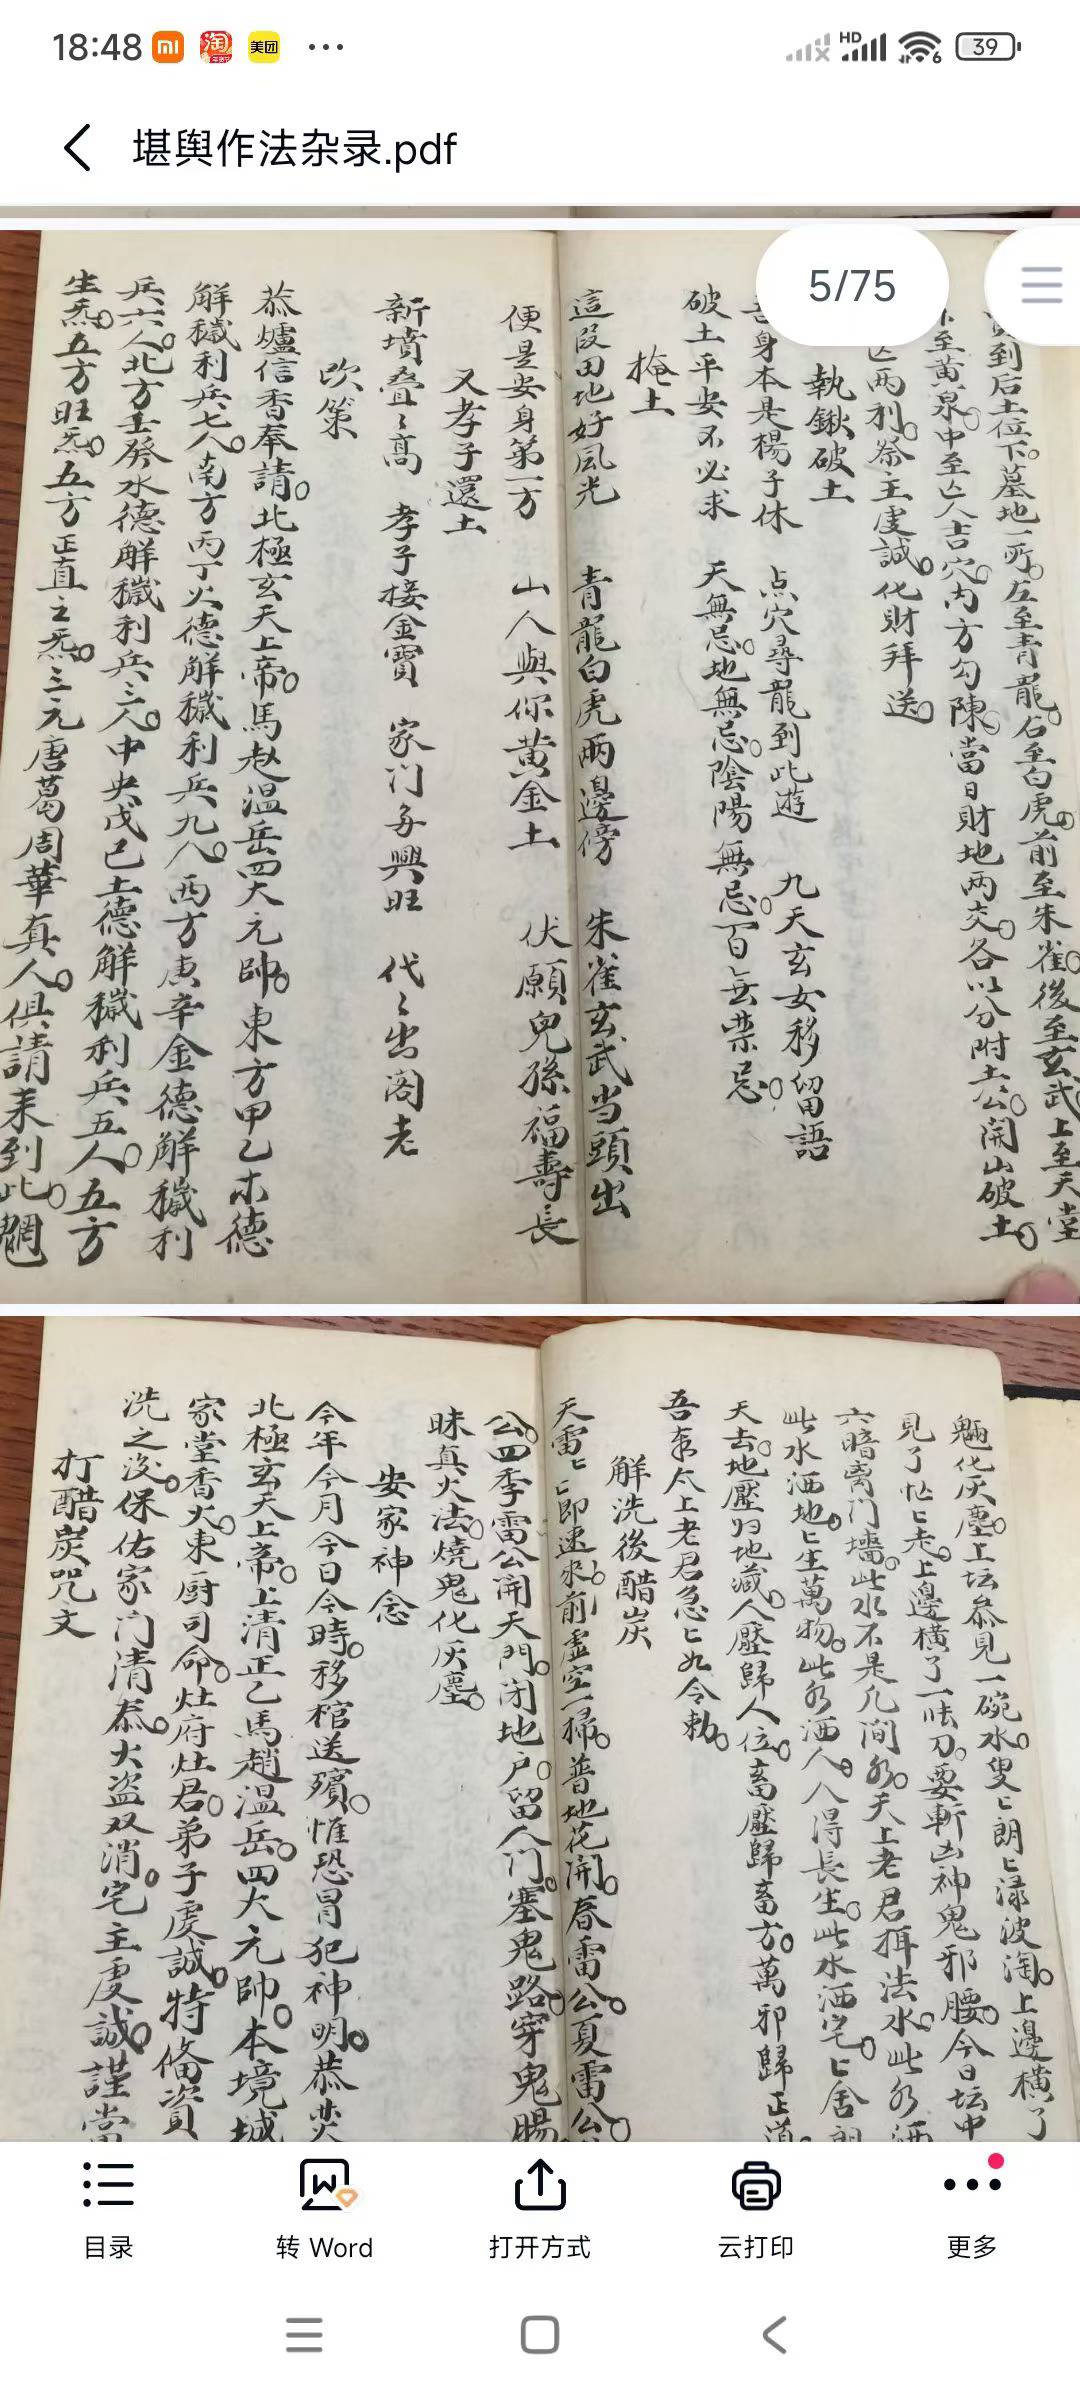 18:48
美团
HD
6
39
堪舆作法杂录.pdf
5/75
到后土位下墓地一所左至青龍右至白虎前至朱雀後至玄武上至天堂
至黄泉中至亡人吉穴内方勾陳當日財地兩交各以分附土公開山破土
亡两利祭主虔誠化財拜送
執鍬破土
身本是楊子休 点穴尋龍到此遊 九天玄女移留語
破土平安不必求 天無忌地無忌陰陽無忌百無禁忌
掩土
這段田地好風光 青龍白虎兩邊傍 朱雀玄武当頭出
便是安身第一方 山人與你黄金土 伏願兒孫福壽長
又孝子還土
新墳叠〻高 孝子接金寶 家门多興旺 代〻出阁老
吹策
恭爐信香奉請北極玄天上帝馬赵温岳四大元帥東方甲乙木德
解穢利兵七人南方丙丁火德解穢利兵九人西方庚辛金德解穢利
兵六人北方壬癸水德解穢利兵三人中央戊己土德解穢利兵五人五方
生炁五方旺炁五方正直之炁三元唐葛周華真人俱請来到此魍
魎化灰塵上坛恭見一碗水叟〻朗〻渌波淘上邊横了
見了忙〻走上邊横了一张刀要斬凶神鬼邪腰今日坛中
六暗离门墻此水不是凡间水天上老君拜法水此水洒
此水洒地〻生萬物此水洒人人得長生此水洒宅〻舍
天去地壓归地藏人壓歸人位畜壓歸畜方萬邪歸正道
吾奉太上老君急〻如令勅
解洗後醋炭
天雷〻〻即速來前虚空一掃普地花開春雷公夏雷公
公四季雷公開天門闭地户留人门塞鬼路穿鬼腸
昧真火法燒鬼化灰塵
安家神念
今年今月今日今時移棺送殯惟恐冒犯神明恭焚
北極玄天上帝上清正乙馬趙温岳四大元帥本境城
家堂香火東厨司命灶府灶君弟子虔誠特備資
洗之後保佑家门清泰火盗双消宅主虔誠謹當
打醋炭咒文
目录
转 Word
打开方式
云打印
更多